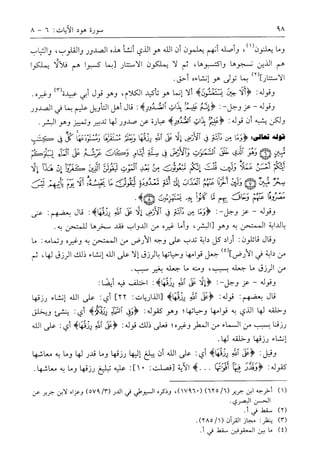 ٩٨ سورة هود الآيات: ٦ - ٨
وما يعلنون(١)، وأصله أنهم يعلمون أن الله هو الذي أنشأ هذه الصدور والقلوب، والثياب
هم الذين نسجوها واكتسبوها، ثم لا يملكون الاستتار [بما كسبوا هم فلألا يملكوا
الاستتار](٢) بما تولى هو إنشاءه أحق.
وقوله: ﴿أَلَا حِينَ يَسْتَغْشُونَ﴾ ألا إنما هو تأكيد الكلام، وهو قول أبي عبيدة(٣) وغيره.
وقوله - عز وجل -: ﴿إِنَّهُ عَلِيمٌ بِذَاتِ الصُّدُورِ﴾: قال أهل التأويل عليم بما في الصدور
ولكن يشبه أن قوله: ﴿عَلِيمٌ بِذَاتِ الصُّدُورِ﴾ عبارة عن صدور لها تدبير وتمييز وهو البشر.
قوله تعالى: ﴿وَمَا مِن دَابَّةٍ فِي الْأَرْضِ إِلَّا عَلَى اللَّهِ رِزْقُهَا وَيَعْلَمُ مُسْتَقَرَّهَا وَمُسْتَوْدَعَهَا كُلٌّ فِي كِتَابٍ
مُّبِينٍ ﴿٦﴾ وَهُوَ الَّذِي خَلَقَ السَّمَاوَاتِ وَالْأَرْضَ فِي سِتَّةِ أَيَّامٍ وَكَانَ عَرْشُهُ عَلَى الْمَاءِ لِيَبْلُوَكُمْ
أَيُّكُمْ أَحْسَنُ عَمَلًا وَلَئِن قُلْتَ إِنَّكُم مَّبْعُوثُونَ مِن بَعْدِ الْمَوْتِ لَيَقُولَنَّ الَّذِينَ كَفَرُوا إِنْ هَذَا إِلَّا
سِحْرٌ مُّبِينٌ ﴿٧﴾ وَلَئِنْ أَخَّرْنَا عَنْهُمُ الْعَذَابَ إِلَى أُمَّةٍ مَّعْدُودَةٍ لَّيَقُولُنَّ مَا يَحْبِسُهُ أَلَا يَوْمَ يَأْتِيهِمْ لَيْسَ
مَصْرُوفًا عَنْهُمْ وَحَاقَ بِهِم مَّا كَانُوا بِهِ يَسْتَهْزِئُونَ ﴿٨﴾
وقوله - عز وجل -: ﴿وَمَا مِن دَابَّةٍ فِي الْأَرْضِ إِلَّا عَلَى اللَّهِ رِزْقُهَا﴾: قال بعضهم: عنى
بالدابة الممتحن به وهو [البشر، وأما غيره من الدواب فقد سخرها للممتحن به.
وقال قائلون: أراد كل دابة تدب على وجه الأرض من الممتحن به وغيره وتمامه: ما
من دابة في الأرض](٤) جعل قوامها وحياتها بالرزق إلا على الله إنشاء ذلك الرزق لها، ثم
من الرزق ما جعله بسبب، ومنه ما جعله بغير سبب.
وقوله - عز وجل -: ﴿إِلَّا عَلَى اللَّهِ رِزْقُهَا﴾: اختلف فيه أيضًا:
قال بعضهم: قوله: ﴿عَلَى اللَّهِ رِزْقُهَا﴾ [الذاريات: ٢٢] أي: على الله إنشاء رزقها
وخلقه لها الذي به قوامها وحياتها؛ وهو كقوله: ﴿وَفِي السَّمَاءِ رِزْقُكُمْ﴾ أي: ينشئ ويخلق
رزقنا بسبب من السماء من المطر وغيره؛ فعلى ذلك قوله: ﴿عَلَى اللَّهِ رِزْقُهَا﴾ أي: على الله
إنشاء رزقها وخلقه لها.
وقيل: ﴿عَلَى اللَّهِ رِزْقُهَا﴾ أي: على الله أن يبلغ إليها رزقها وما قدر لها وما به معاشها
كقوله: ﴿وَقَدَّرَ فِيهَا أَقْوَاتَهَا . . .﴾ الآية [فصلت: ١٠]: عليه تبليغ رزقها وما به معاشها.
(١) أخرجه ابن جرير (٦٢٥/٦) (١٧٩٦٠)، وذكره السيوطي في الدر (٥٧٩/٣) وعزاه لابن جرير عن
الحسن البصري.
(٢) سقط في أ.
(٣) ينظر: مجاز القرآن (٢٨٥/١).
(٤) ما بين المعقوفين سقط في أ.